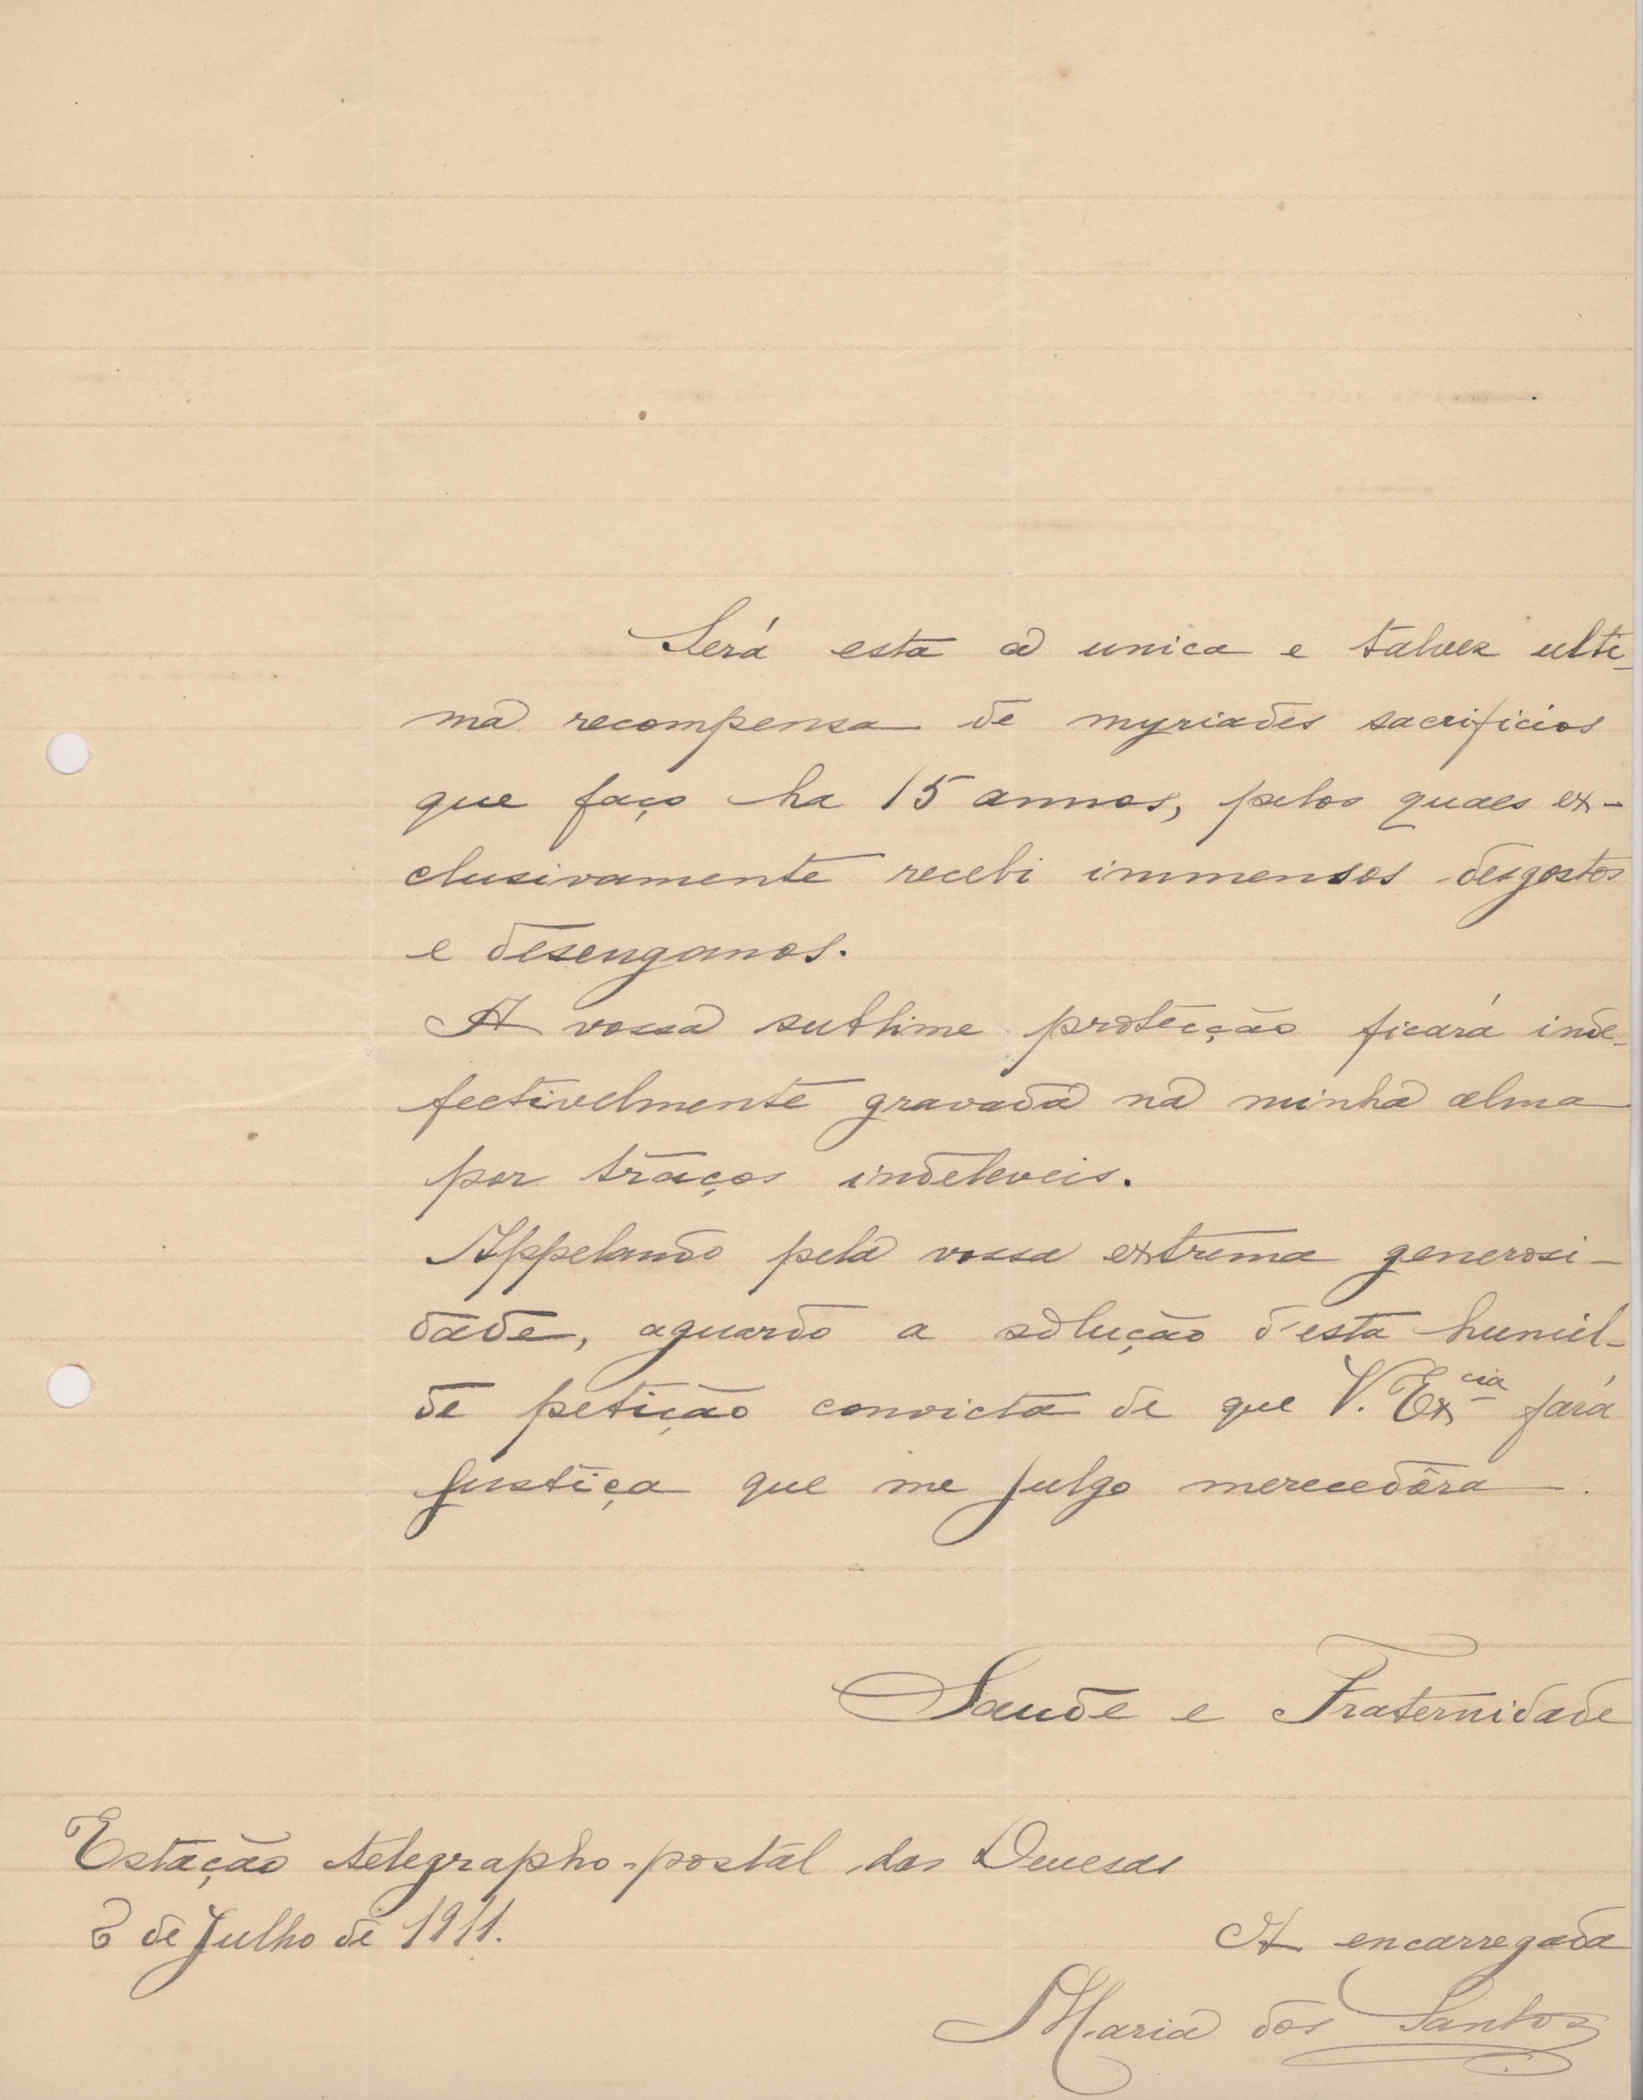 Será esta a unica e talvez ulti-
ma recompensa de myriades sacrificios
que faço ha 15 annos, pelos quaes ex-
clusivamente recebi immensos desgostos
e desenganos.
A vossa sublime protecção ficará inde-
fectivelmente gravada na minha alma
por traços indeleveis.
Appelando pela vossa extrema generosi-
dade, aguardo a solução d'esta humil-
de petição convicta de que V. Ex.cia fará
justiça que me julgo merecedôra.
Saude e Fraternidade
Estação telegrapho-postal das Devesas
3 de Julho de 1911.
A encarregada
Maria dos Santos